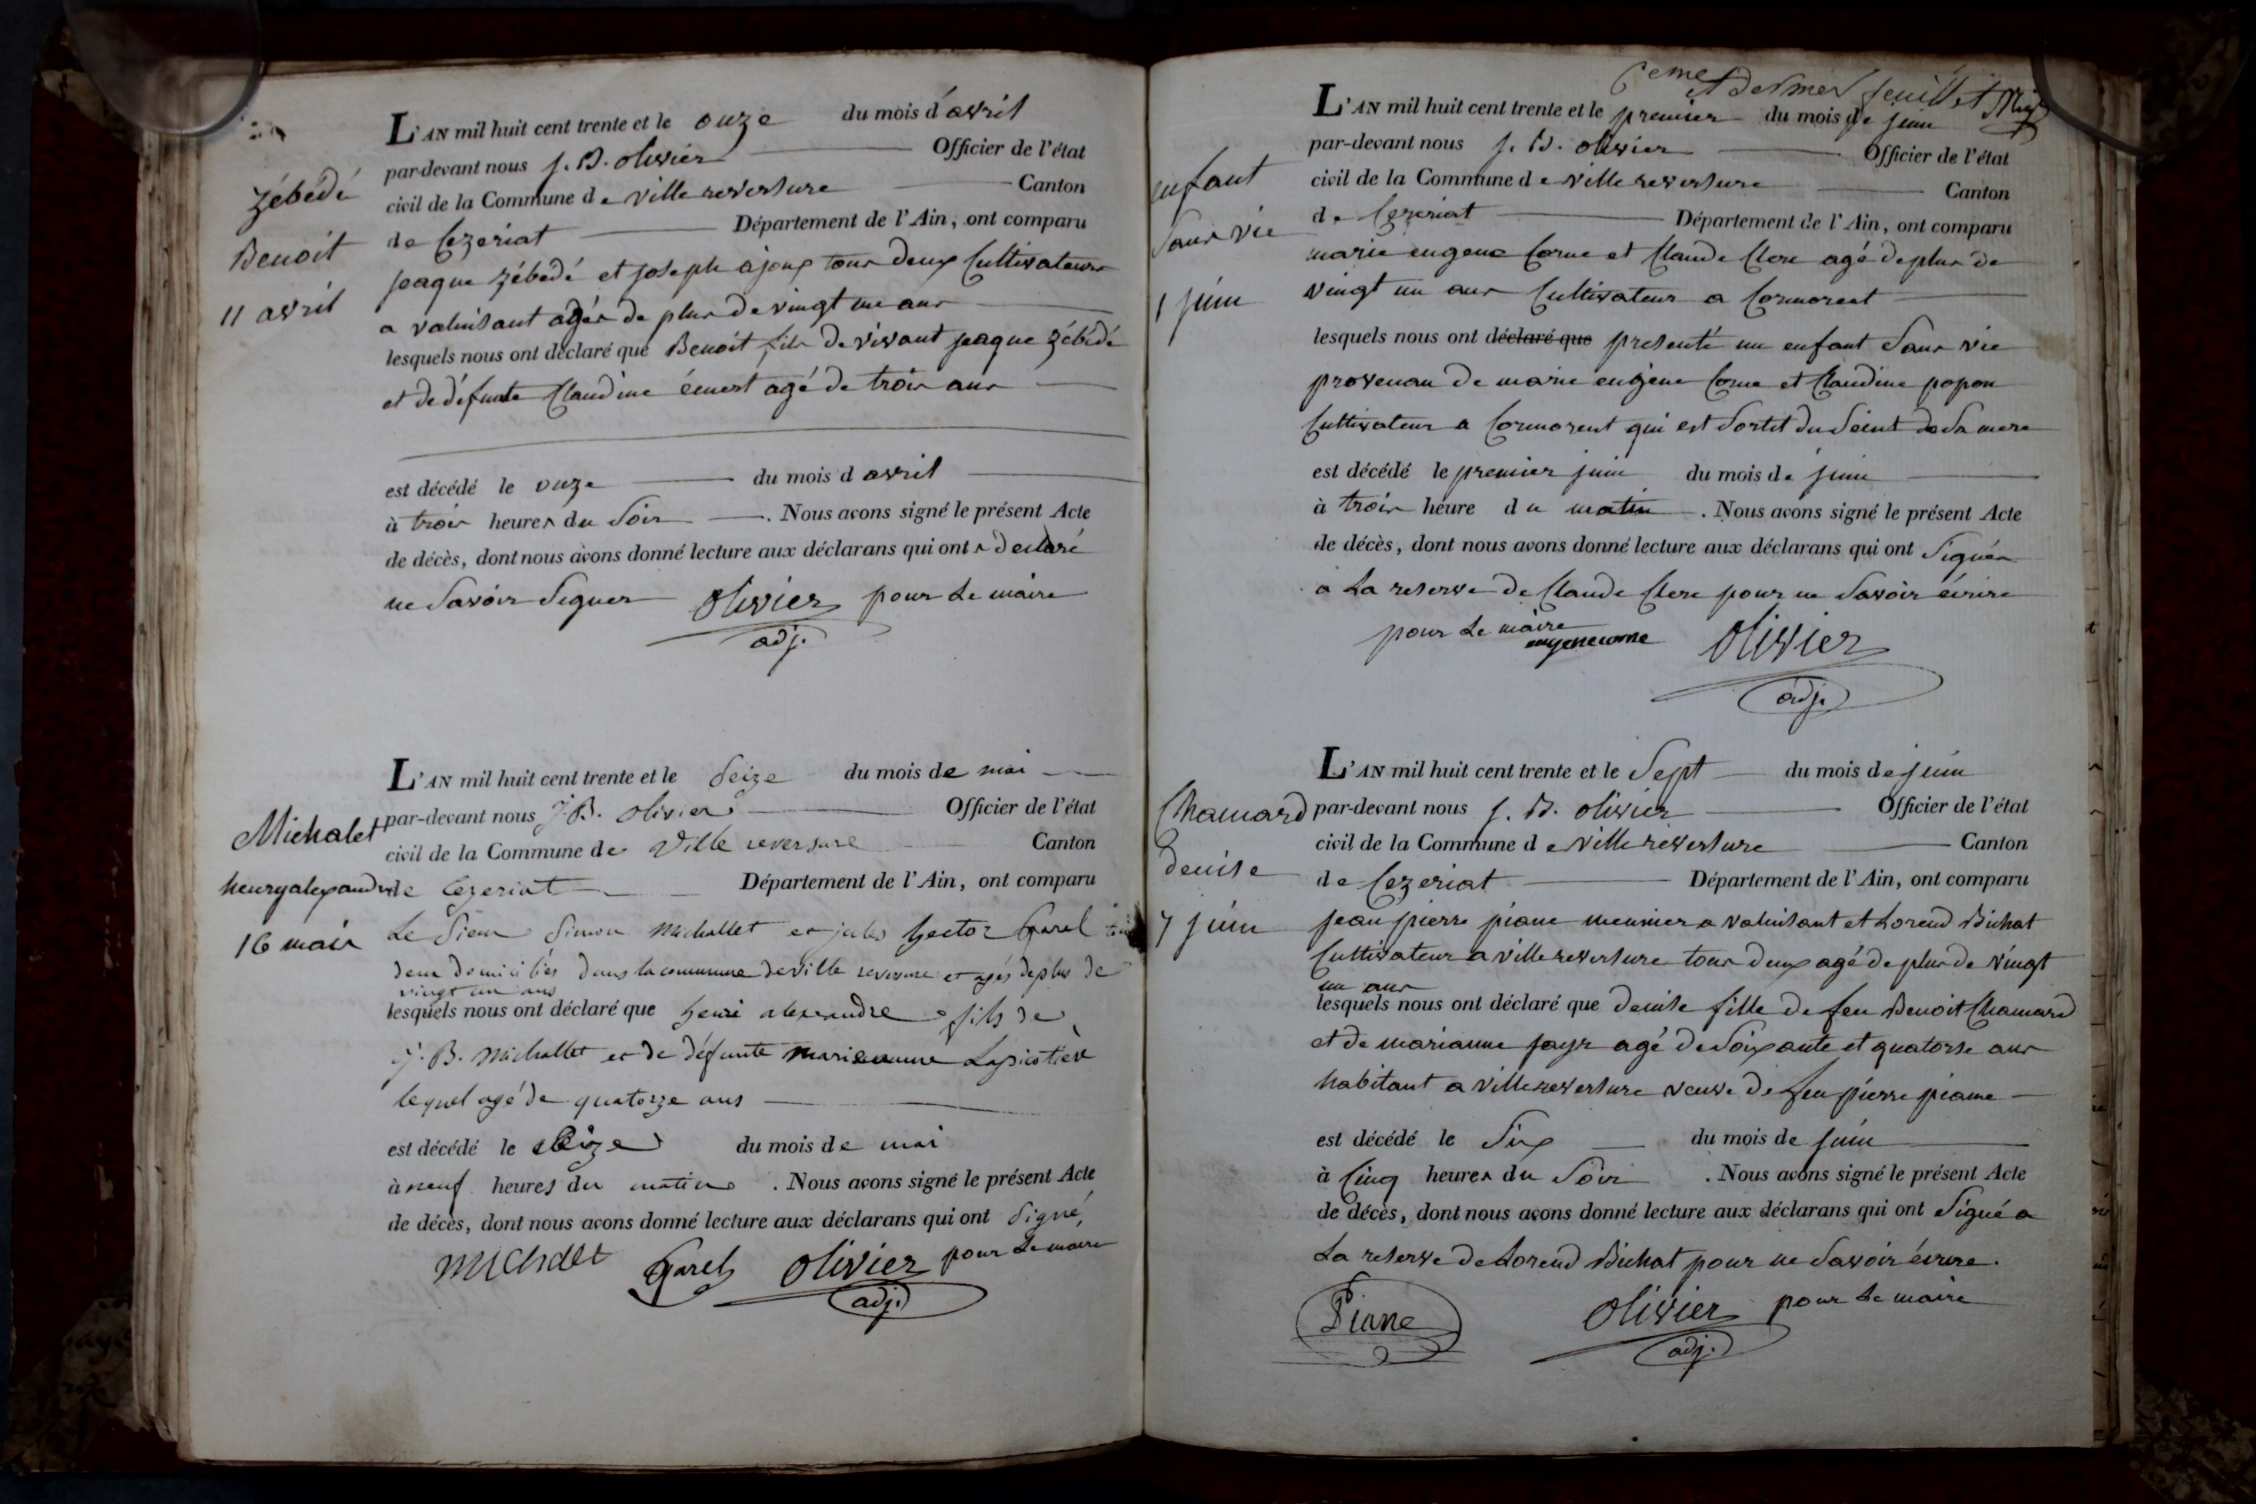 L'AN mil huit cent trente et le onze du mois d'avril
par-devant nous J. B. olivier Officier de l'état
civil de la Commune de ville reversure Canton
de Cezeriat Département de l'Ain, ont comparu
Zébédé
Benoit
11 avril
jaque zébédé et joseph ajoux tous deux Cultivateurs
a valuisant agés de plus de vingt un ans
lesquels nous ont déclaré que Benoit fils de vivant jaque zébédé
et de défunte Claudine émert agé de trois ans
est décédé le onze du mois d avril
à trois heures du Soir . Nous avons signé le présent Acte
de décès, dont nous avons donné lecture aux déclarans qui ont declaré
ne Savoir Signer olivier pour Le maire
adj.
L'AN mil huit cent trente et le Seize du mois de mai
par-devant nous J. B. olivier Officier de l'état
civil de la Commune de Ville reversure Canton
de Cezeriat Département de l'Ain, ont comparu
Michalet
henry alexandre
16 mais
Le Sieur Simon Michallet et jules hector Garel
deux domiciliés dans la commune de ville reversure et agés de plus de
vingt un ans
lesquels nous ont déclaré que henri alexandre fils de
J. B. Michallet et de défunte marieanne
lequel agé de quatorze ans
est décédé le Seize du mois de mai
à neuf heures du matin . Nous avons signé le présent Acte
de décès, dont nous avons donné lecture aux déclarans qui ont Signé,
michalet Garel olivier pour Le maire
adj.
6eme et dernier feuillet
L'AN mil huit cent trente et le premier du mois de juin
par-devant nous J. B. olivier Officier de l'état
civil de la Commune de ville reversure Canton
de Cezeriat Département de l'Ain, ont comparu
enfant
Sans vie
1 juin
marie eugene Corne et Claude Clerc agé de plus de
vingt un ans Cultivateur a Cormorent
lesquels nous ont déclaré que presenté un enfant Sans vie
provenan de marie eugene Corne et Claudine popon
Cultivateur a Cormorent qui est Sortit du Seint de Sa mere
est décédé le premier juin du mois de juin
à trois heure du matin . Nous avons signé le présent Acte
de décès, dont nous avons donné lecture aux déclarans qui ont Signés
a La reserve de Claude Clerc pour ne Savoir écrire
pour Le maire
eugene corne olivier
adj.
L'AN mil huit cent trente et le Sept du mois de juin
par-devant nous J. B. olivier Officier de l'état
civil de la Commune de ville reversure Canton
de Cezeriat Département de l'Ain, ont comparu
Chamard
denise
7 juin
jean pierre piane meunier a valuisant et Lorend Bichat
Cultivateur a ville reversure tous deux agé de plus de vingt
un ans
lesquels nous ont déclaré que denise fille de feu Benoit Chamard
et de marianne agé de Soixante et quatorse ans
habitant a ville reversure veuve de feu pierre piane
est décédé le Six du mois de juin
à Cinq heures du Soir . Nous avons signé le présent Acte
de décès, dont nous avons donné lecture aux déclarans qui ont Signé a
La reserve de Lorend Bichat pour ne Savoir écrire.
Piane olivier pour Le maire
adj.